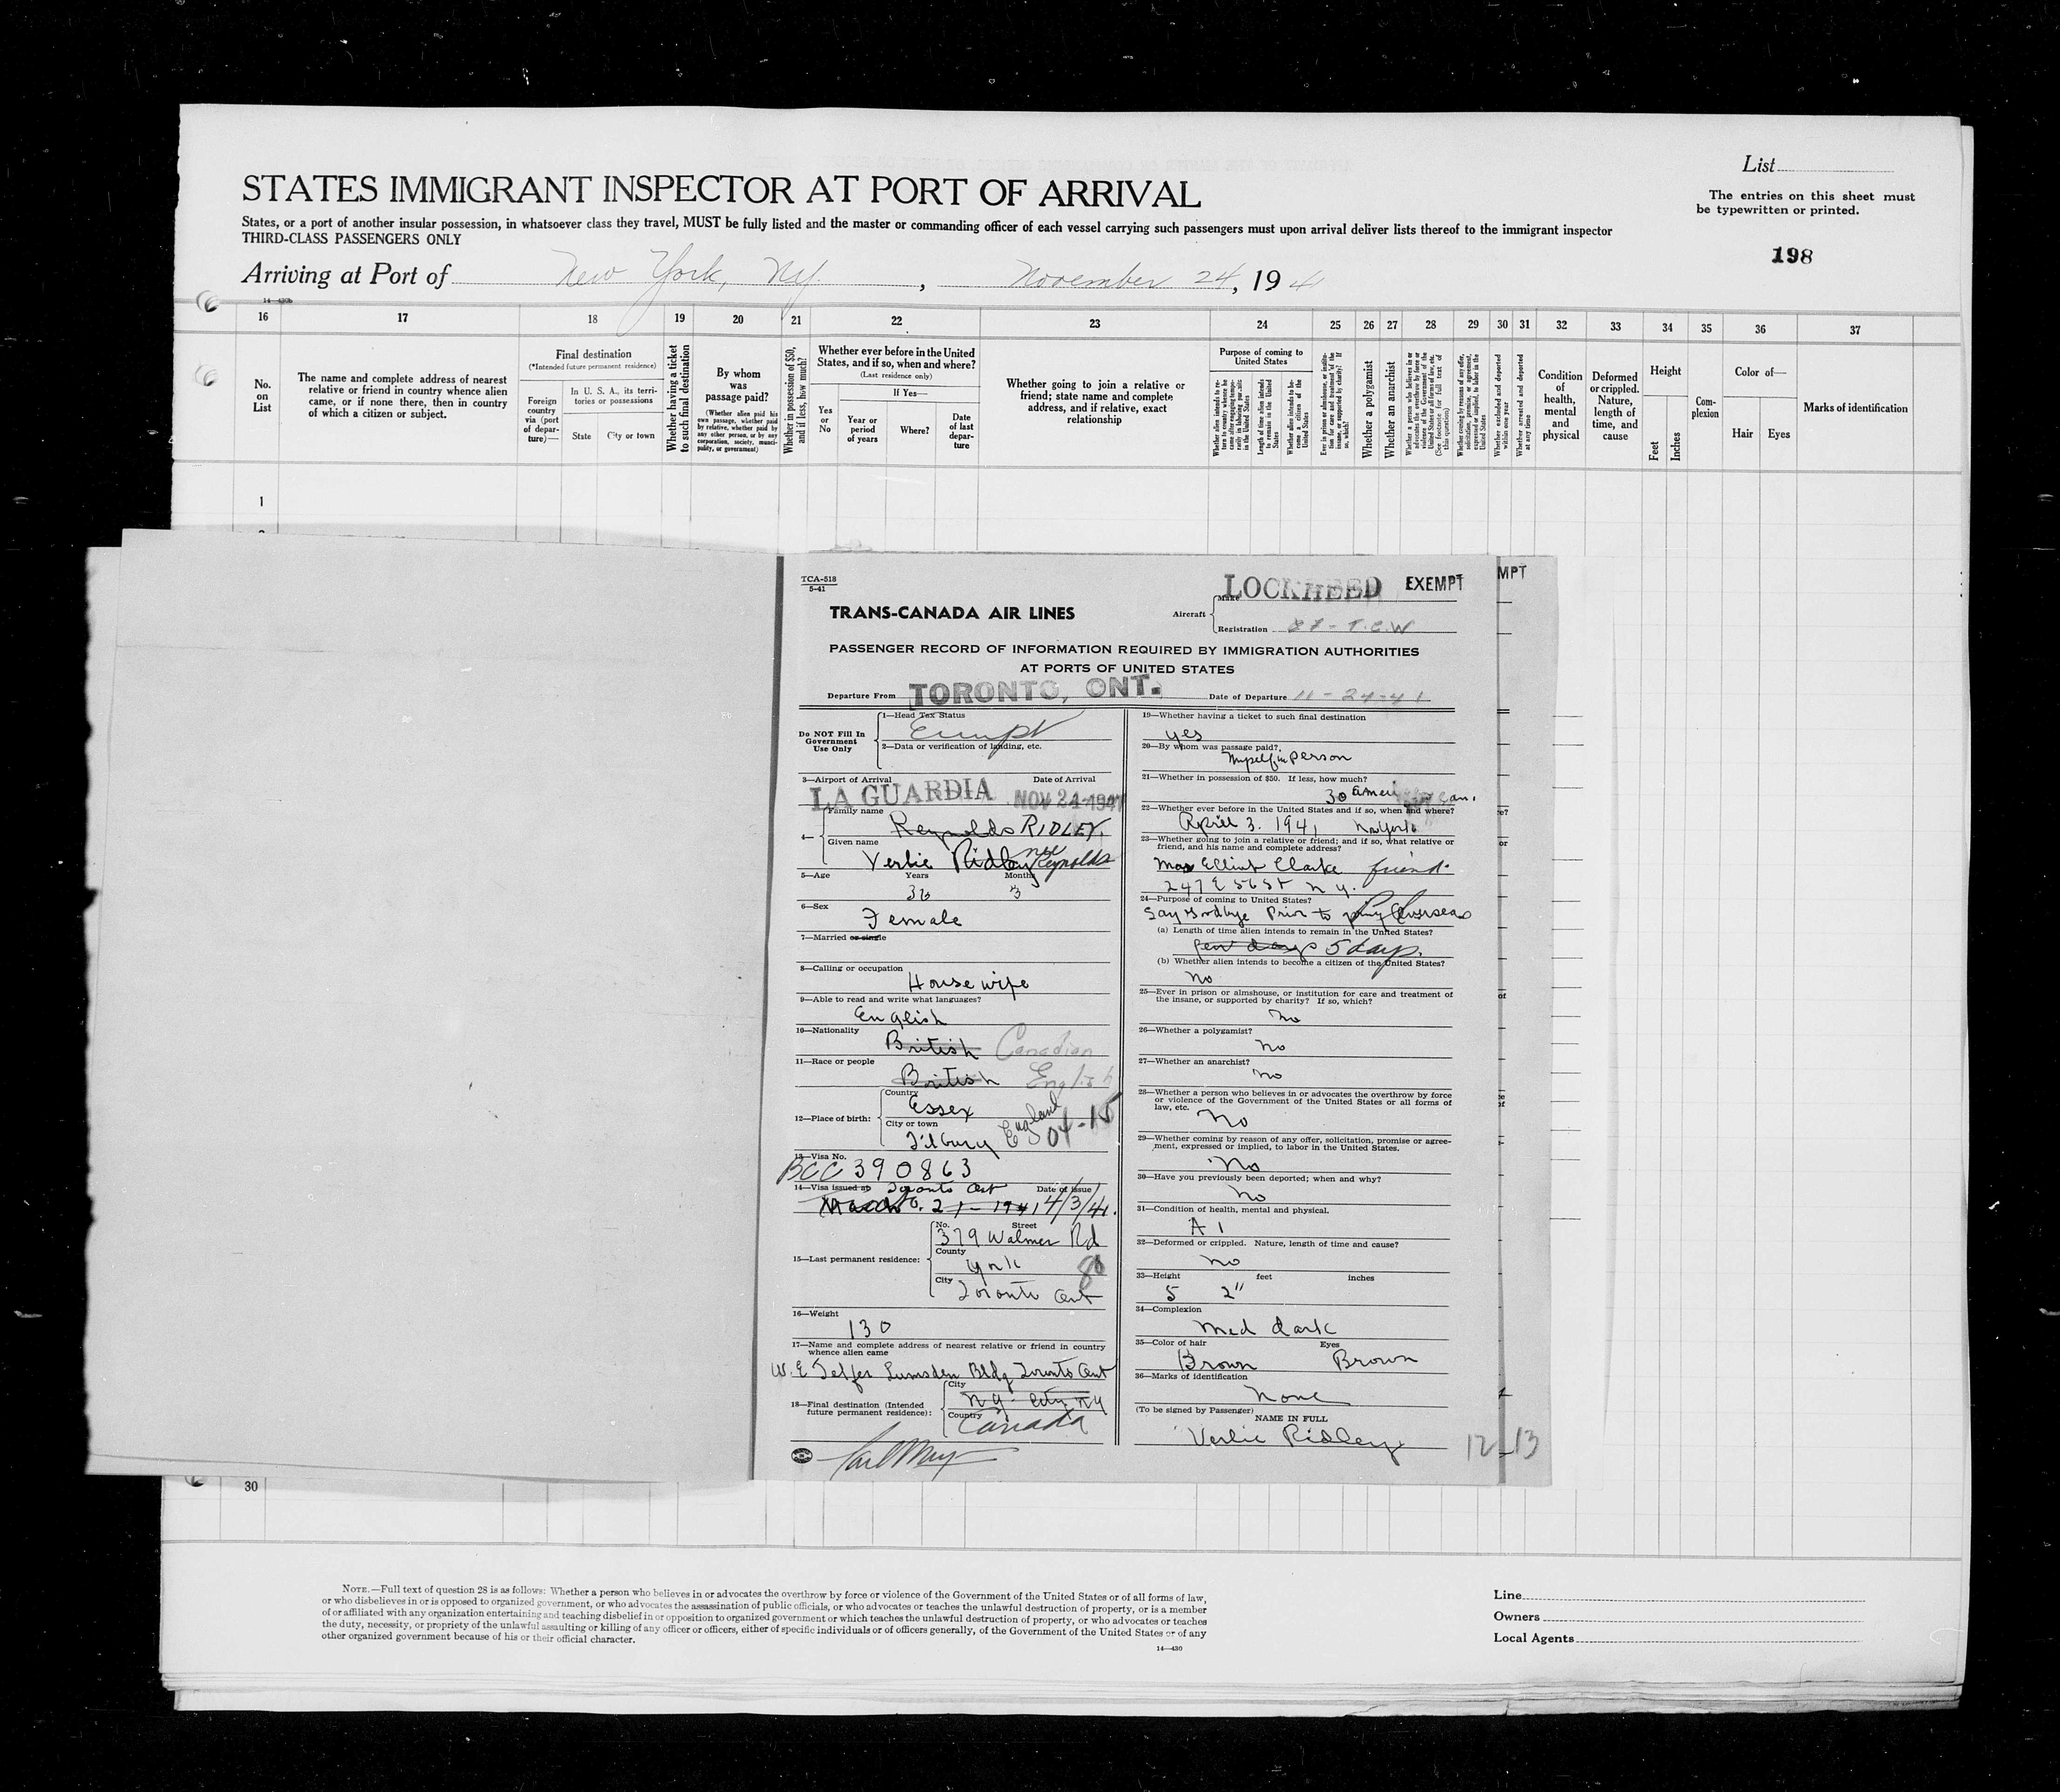 List
STATES IMMIGRANT INSPECTOR AT PORT OF ARRIVAL
The entries on this sheet must
be typewritten or printed.
States, or a port of another insular possession, in whatsoever class they travel, MUST be fully listed and the master or commanding officer of each vessel carrying such passengers must upon arrival deliver lists thereof to the immigrant inspector
THIRD-CLASS PASSENGERS ONLY
198
Arriving at Port of New York, NY. , November 24, 194
14—430b
16 17 18 19 20 21 22 23 24 25 26 27 28 29 30 31 32 33 34 35 36 37
No.
on
List
The name and complete address of nearest
relative or friend in country whence alien
came, or if none there, then in country
of which a citizen or subject.
Final destination
(*Intended future permanent residence)
Foreign
country
via (port
of depar-
ture)—
In U. S. A., its terri-
tories or possessions
State City or town
Whether having a ticket
to such final destination
By whom
was
passage paid?
(Whether alien paid his
own passage, whether paid
by relative, whether paid by
any other person, or by any
corporation, society, munici-
pality, or government)
Whether in possession of $50,
and if less, how much?
Whether ever before in the United
States, and if so, when and where?
(Last residence only)
Yes
or
No
If Yes—
Year or
period
of years
Where?
Date
of last
depar-
ture
Whether going to join a relative or
friend; state name and complete
address, and if relative, exact
relationship
Purpose of coming to
United States
Length of time alien intends
to remain in the United
States
Whether alien intends to be-
come a citizen of the
United States
Whether a polygamist
Whether an anarchist
Whether excluded and deported
within one year
Whether arrested and deported
at any time
Condition
of
health,
mental
and
physical
Deformed
or crippled.
Nature,
length of
time, and
cause
Height
Feet
Inches
Com-
plexion
Color of—
Hair Eyes
Marks of identification
1
TCA-518
5-41
TRANS-CANADA AIR LINES
Aircraft
Make LOCKHEED EXEMPT
MPT
Registration 87-T.C.W
PASSENGER RECORD OF INFORMATION REQUIRED BY IMMIGRATION AUTHORITIES
AT PORTS OF UNITED STATES
Departure From TORONTO, ONT. Date of Departure 11-24-41
Do NOT Fill In
Government
Use Only
1—Head Tax Status
2—Data or verification of landing, etc.
3—Airport of Arrival Date of Arrival
LA GUARDIA NOV 24 1941
4—
Family name
Reynolds RIDLEY.
Given name
Verlie Ridley nee Reynolds
5—Age Years Months
36 3
6—Sex
Female
7—Married or single
8—Calling or occupation
Housewife
9—Able to read and write what languages?
English
10—Nationality
British Canadian
11—Race or people
British English
12—Place of birth:
Country
Essex
City or town
Tilbury England 04-15
13—Visa No.
BCC 390863
14—Visa issued at Toronto Ont Date of issue
March 21-1941 4/3/41.
15—Last permanent residence:
No. Street
379 Walmer Rd
County
York
City
Toronto Ont
16—Weight
130
17—Name and complete address of nearest relative or friend in country
whence alien came
W. E Telfer Lumsden Bldg Toronto Ont
18—Final destination (Intended
future permanent residence):
City
NY City NY
Country
Canada
19—Whether having a ticket to such final destination
yes
20—By whom was passage paid?
Myself in person
21—Whether in possession of $50. If less, how much?
30 Ameri Can.
22—Whether ever before in the United States and if so, when and where?
April 3. 1941 New York
23—Whether going to join a relative or friend; and if so, what relative or
friend, and his name and complete address?
Elliot Clarke friend.
247 E 56 St N Y.
24—Purpose of coming to United States?
Say Goodbye Prior to going Overseas
(a) Length of time alien intends to remain in the United States?
few days 5 days.
(b) Whether alien intends to become a citizen of the United States?
No
25—Ever in prison or almshouse, or institution for care and treatment of
the insane, or supported by charity? If so, which?
no
26—Whether a polygamist?
no
27—Whether an anarchist?
no
28—Whether a person who believes in or advocates the overthrow by force
or violence of the Government of the United States or all forms of
law, etc.
No
29—Whether coming by reason of any offer, solicitation, promise or agree-
ment, expressed or implied, to labor in the United States.
No
30—Have you previously been deported; when and why?
no
31—Condition of health, mental and physical.
A 1
32—Deformed or crippled. Nature, length of time and cause?
no
33—Height feet inches
5 2"
34—Complexion
Med dark
35—Color of hair Eyes
Brown Brown
36—Marks of identification
None
(To be signed by Passenger)
NAME IN FULL
Verlie Ridley
12 13
30
NOTE.—Full text of question 28 is as follows: Whether a person who believes in or advocates the overthrow by force or violence of the Government of the United States or of all forms of law,
or who disbelieves in or is opposed to organized government, or who advocates the assassination of public officials, or who advocates or teaches the unlawful destruction of property, or is a member
of or affiliated with any organization entertaining and teaching disbelief in or opposition to organized government or which teaches the unlawful destruction of property, or who advocates or teaches
the duty, necessity, or propriety of the unlawful assaulting or killing of any officer or officers, either of specific individuals or of officers generally, of the Government of the United States or of any
other organized government because of his or their official character.
14—430
Line
Owners
Local Agents